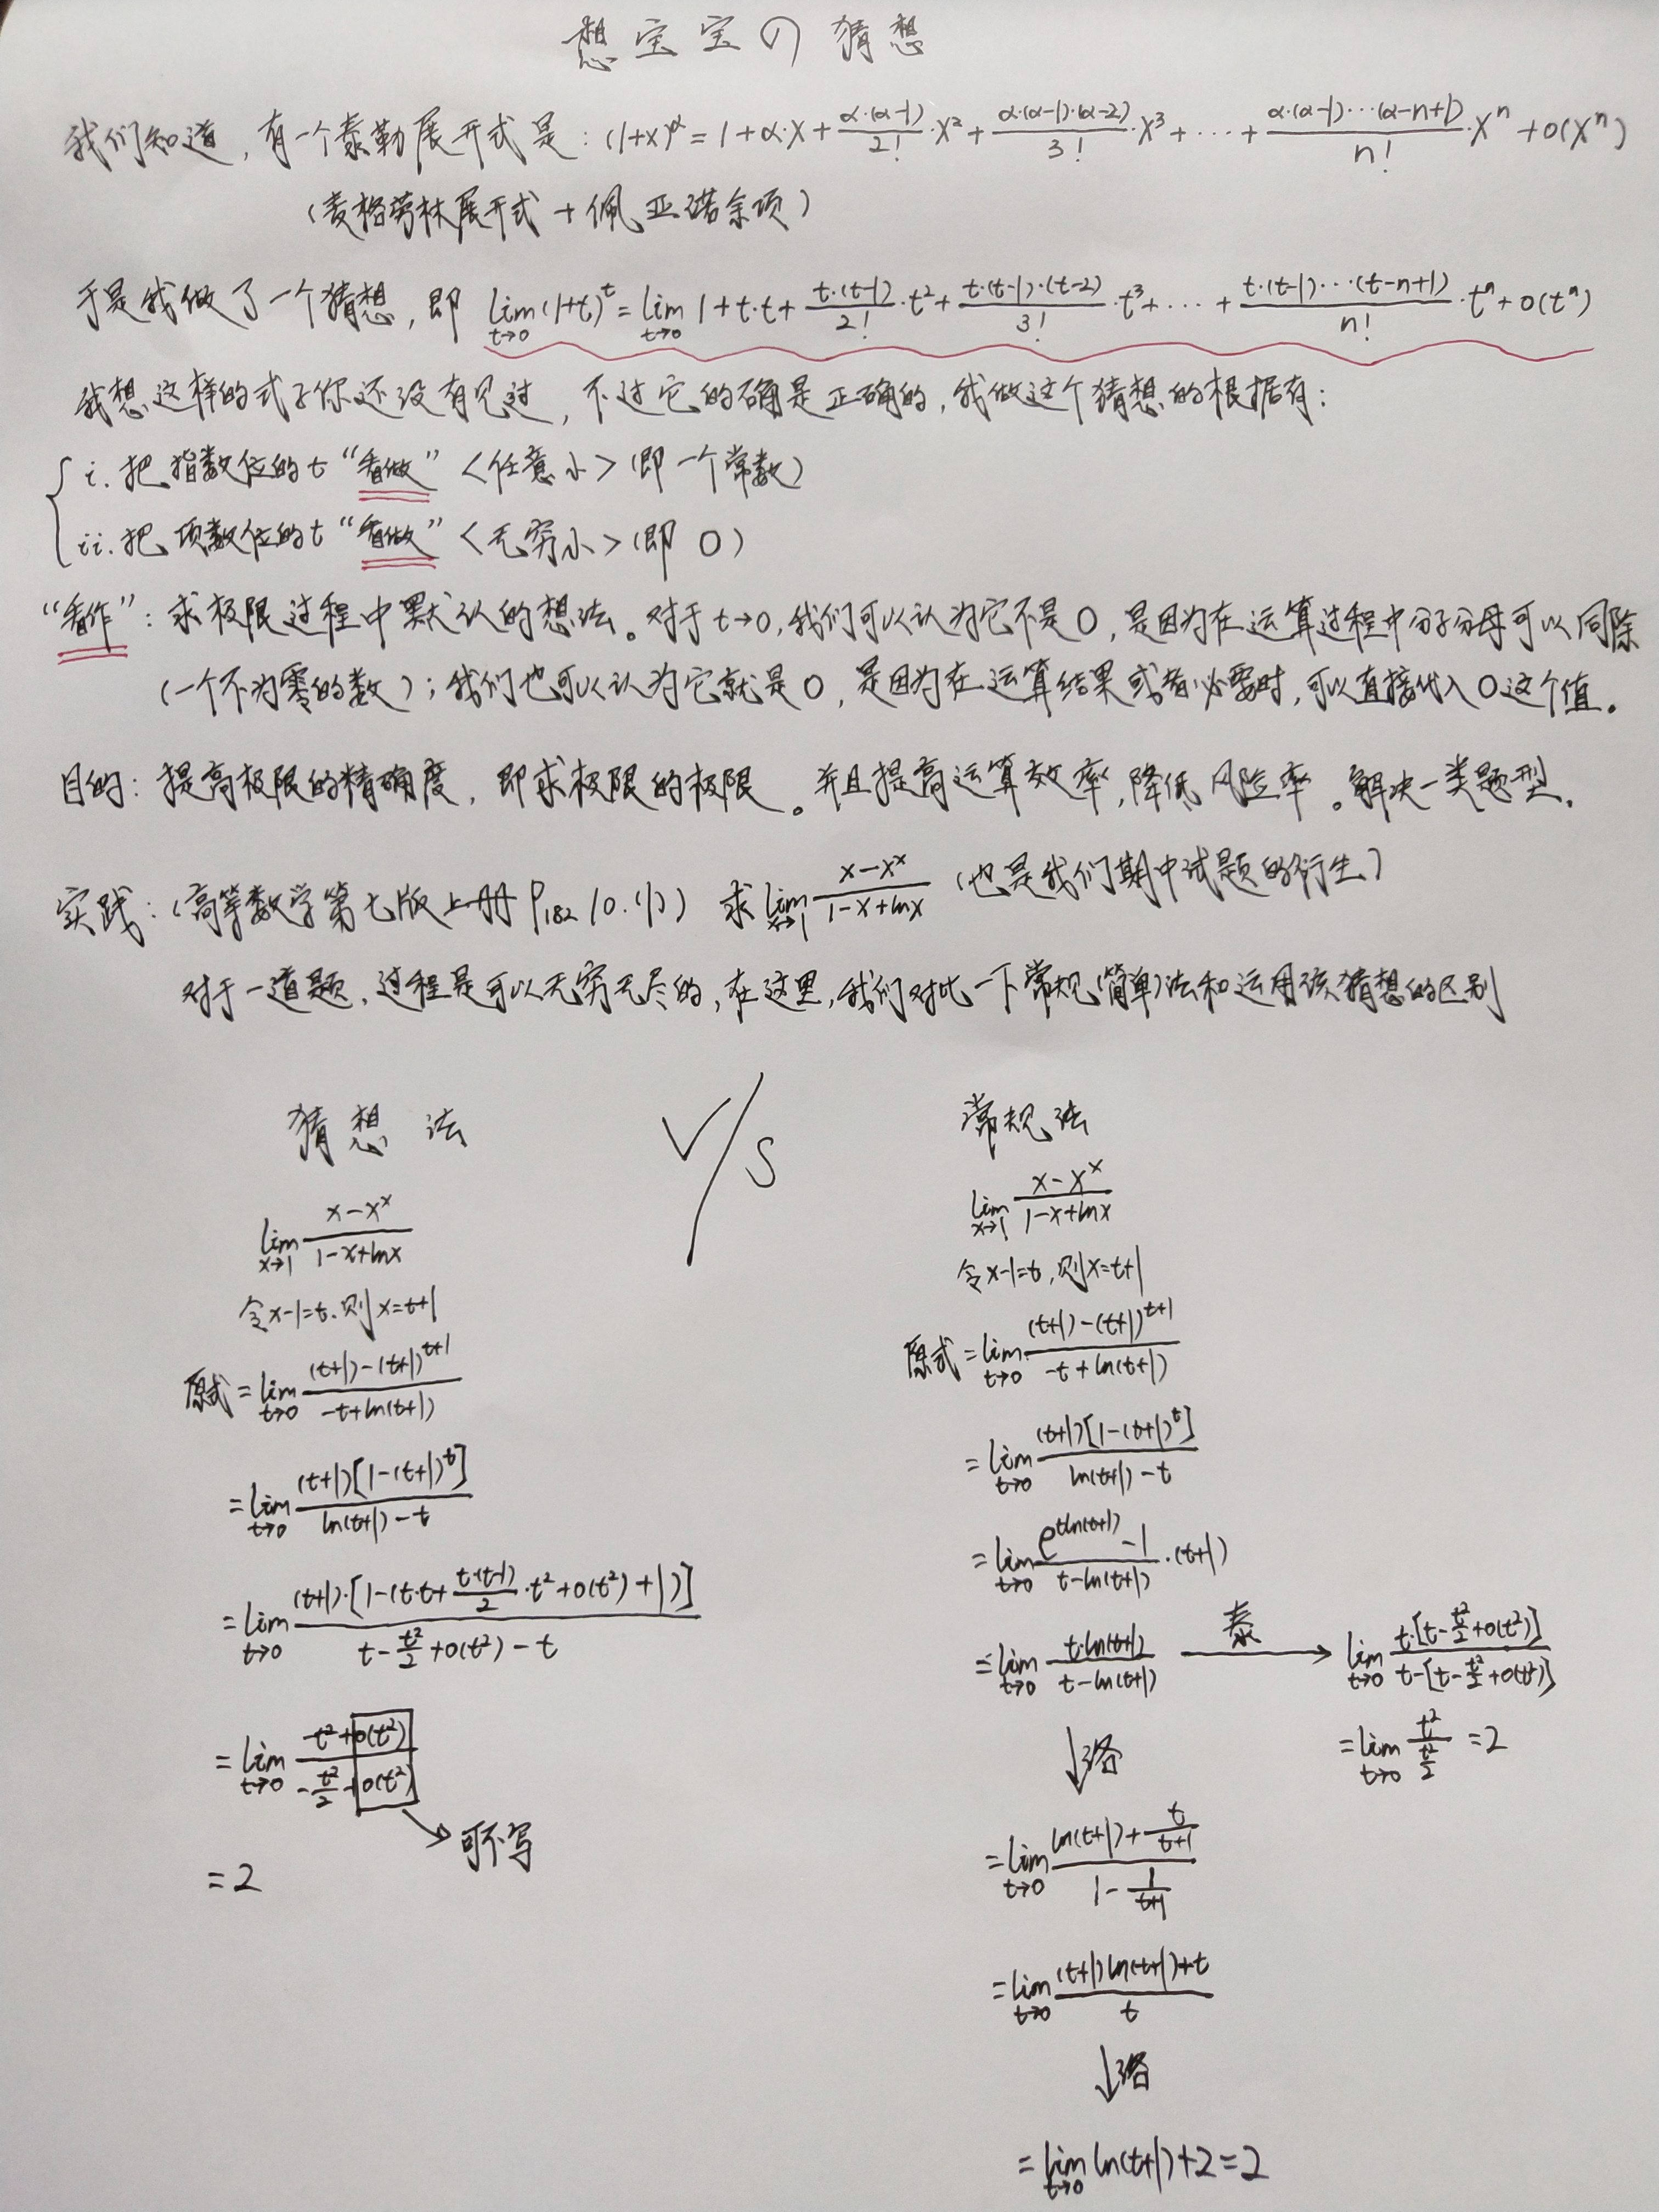 想宝宝の猜想
我们知道，有一个泰勒展开式是：(1+x)^α = 1+α·x+\frac{α·(α-1)}{2!}·x²+\frac{α·(α-1)·(α-2)}{3!}·x³+⋯+\frac{α·(α-1)⋯(α-n+1)}{n!}·x^n+o(x^n)
（麦格劳林展开式+佩亚诺余项）
于是我做了一个猜想，即 \lim_{t→0}(1+t)^t = \lim_{t→0} 1+t·t+\frac{t·(t-1)}{2!}·t²+\frac{t·(t-1)·(t-2)}{3!}·t³+⋯+\frac{t·(t-1)⋯(t-n+1)}{n!}·t^n+o(t^n)
我想这样的式子你还没有见过，不过它的确是正确的，我做这个猜想的根据有：
i. 把指数位的t“看做”<任意小>（即一个常数）
ii. 把项数位的t“看做”<无穷小>（即0）
“看作”：求极限过程中默认的想法。对于t→0，我们可以认为它不是0，是因为在运算过程中分子分母可以同除
（一个不为零的数）；我们也可以认为它就是0，是因为在运算结果或者必要时，可以直接代入0这个值。
目的：提高极限的精确度，即求极限的极限。并且提高运算效率，降低风险率。解决一类题型。
实践：（高等数学第七版上册P182 10.(1)） 求\lim_{x→1}\frac{x-x^x}{1-x+lnx}（也是我们期中试题的衍生）
对于一道题，过程是可以无穷无尽的，在这里，我们对比一下常规(简单)法和运用该猜想的区别
猜想法
V/S
常规法
\lim_{x→1}\frac{x-x^x}{1-x+lnx}
令x-1=t，则x=t+1
原式=\lim_{t→0}\frac{(t+1)-(t+1)^{t+1}}{-t+ln(t+1)}
=\lim_{t→0}\frac{(t+1)[1-(t+1)^t]}{ln(t+1)-t}
=\lim_{t→0}\frac{(t+1)·[1-(t·t+\frac{t·(t-1)}{2}·t²+o(t²)+1)]}{t-\frac{t²}{2}+o(t²)-t}
=\lim_{t→0}\frac{-t²+o(t²)}{-\frac{t²}{2}+o(t²)}
可不写
=2
\lim_{x→1}\frac{x-x^x}{1-x+lnx}
令x-1=t，则x=t+1
原式=\lim_{t→0}\frac{(t+1)-(t+1)^{t+1}}{-t+ln(t+1)}
=\lim_{t→0}\frac{(t+1)[1-(t+1)^t]}{ln(t+1)-t}
=\lim_{t→0}\frac{e^{tln(t+1)}-1}{t-ln(t+1)}·(t+1)
=\lim_{t→0}\frac{t·ln(t+1)}{t-ln(t+1)} 泰→ \lim_{t→0}\frac{t·[t-\frac{t²}{2}+o(t²)]}{t-[t-\frac{t²}{2}+o(t²)]}
=\lim_{t→0}\frac{t²}{\frac{t²}{2}}=2
↓洛
=\lim_{t→0}\frac{ln(t+1)+\frac{t}{t+1}}{1-\frac{1}{t+1}}
=\lim_{t→0}\frac{(t+1)ln(t+1)+t}{t}
↓洛
=\lim_{t→0}ln(t+1)+2=2